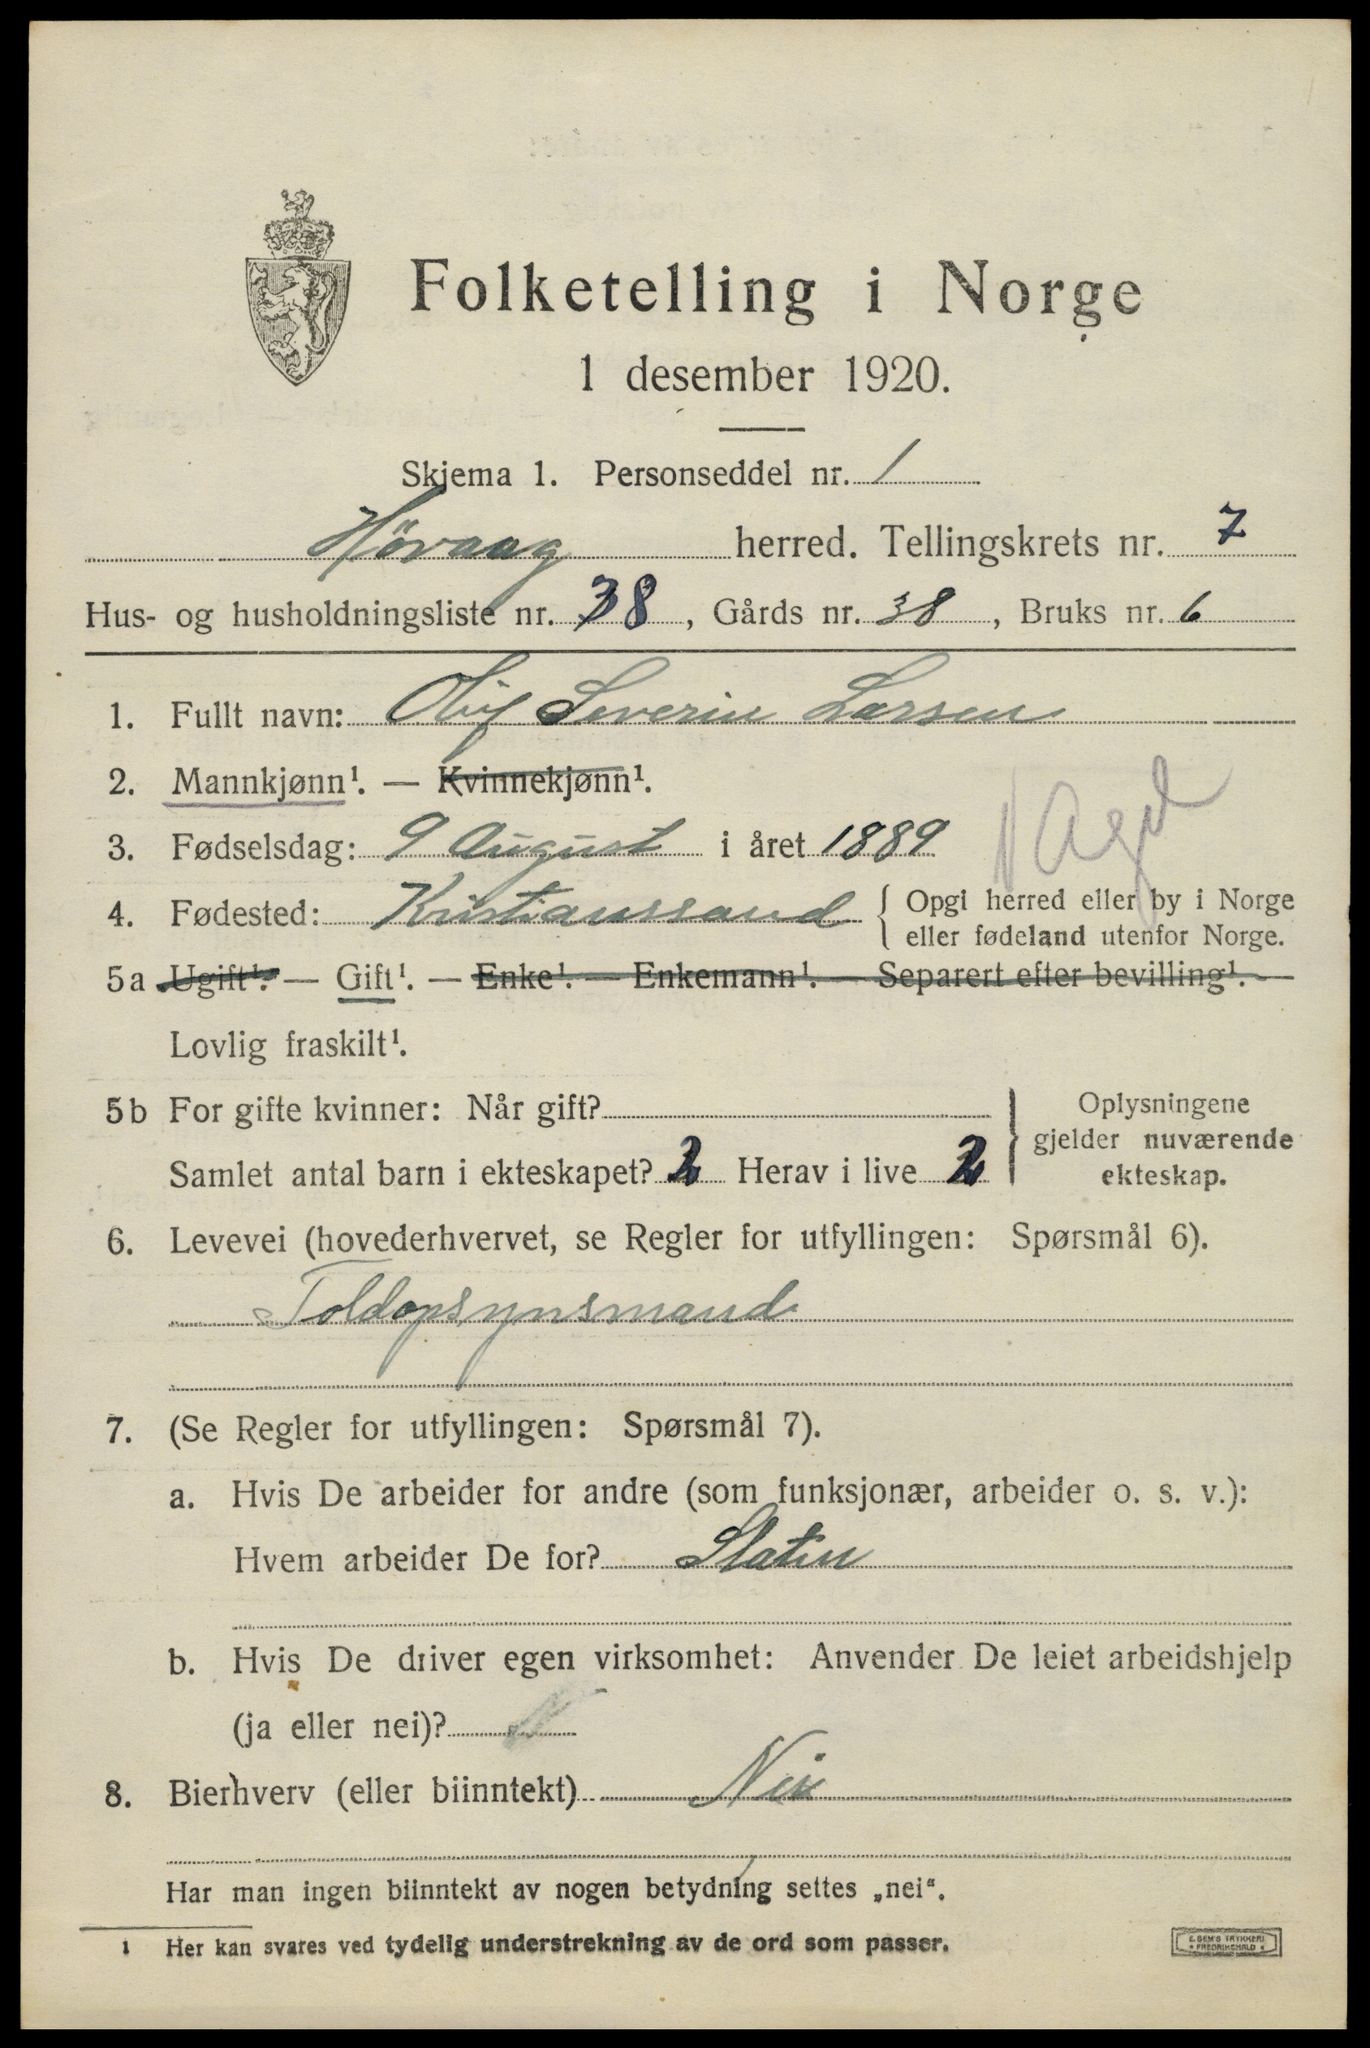 Folketelling i Norge
1 desember 1920.
Skjema 1. Personseddel nr. 1
Høvaag herred. Tellingskrets nr. 7
Hus- og husholdningsliste nr. 38, Gårds nr. 38, Bruks nr. 6
1. Fullt navn: Oluf Severin Larsen
2. Mannkjønn¹. — Kvinnekjønn¹.
3. Fødselsdag: 9 August i året 1889
4. Fødested: Kristianssand { Opgi herred eller by i Norge
eller fødeland utenfor Norge.
5a Ugift¹. — Gift¹. — Enke¹. — Enkemann¹. — Separert efter bevilling¹. —
Lovlig fraskilt¹.
5b For gifte kvinner: Når gift?
Samlet antal barn i ekteskapet? 2 Herav i live 2
Oplysningene
gjelder nuværende
ekteskap.
6. Levevei (hovederhvervet, se Regler for utfyllingen: Spørsmål 6).
Toldopsynsmand
7. (Se Regler for utfyllingen: Spørsmål 7).
a. Hvis De arbeider for andre (som funksjonær, arbeider o. s. v.):
Hvem arbeider De for? Staten
b. Hvis De driver egen virksomhet: Anvender De leiet arbeidshjelp
(ja eller nei)? N
8. Bierhverv (eller biinntekt) Nei
Har man ingen biinntekt av nogen betydning settes „nei“.
1 Her kan svares ved tydelig understrekning av de ord som passer.
E. SEM'S TRYKKERI
• FREDRIKSHALD •